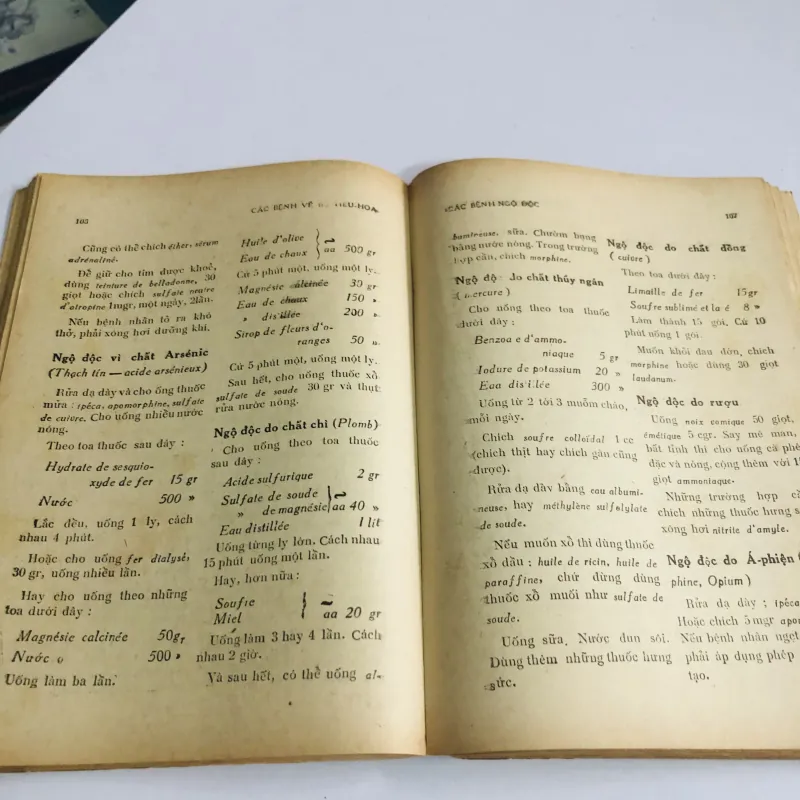 103
CÁC BỆNH VỀ TIÊU-HÓA
Cũng có thể chích éther, sérum
adrénaliné.
Để giữ cho tim được khoẻ,
dùng teinture de belladonne, 30
giọt hoặc chích sulfate neutre
d'atropine 1mgr, một ngày, 2lần.
Nếu bệnh nhân tỏ ra khó
thở, phải xông hơi dưỡng khí.
Ngộ độc vì chất Arsénic
(Thạch tín — acide arsénieux)
Rửa dạ dày và cho ống thuốc
mửa : ipéca, apomorphine, sulfate
de cuivre. Cho uống nhiều nước
nóng.
Theo toa thuốc sau đây :
Hydrate de sesquio-
xyde de fer 15 gr
Nước 500 »
Lắc đều, uống 1 ly, cách
nhau 4 phút.
Hoặc cho uống fer dialysé,
30 gr, uống nhiều lần.
Hay cho uống theo những
toa dưới đây :
Magnésie calcinée 50gr
Nước 500 »
Uống làm ba lần.
Huile d'olive
Eau de chaux } aa 500 gr
Cứ 5 phút một, uống một ly.
Magnésie calcinée 30 gr
Eau de chaux 150 »
» distillée 200 »
Sirop de fleurs d'o-
ranges 50 »
Cứ 5 phút một, uống một ly.
Sau hết, cho uống thuốc xổ
sulfate de soude 30 gr và thụt
rửa nước nóng.
Ngộ độc do chất chì (Plomb)
Cho uống theo toa thuốc
sau đây :
Acide sulfurique 2 gr
Sulfate de soude
» de magnésie } aa 40 »
Eau distillée 1 lít
Uống từng ly lớn. Cách nhau
15 phút uống một lần.
Hay, hơn nữa :
Soufre
Miel } aa 20 gr
Uống làm 3 hay 4 lần. Cách
nhau 2 giờ.
Và sau hết, có thể uống al-
CÁC BỆNH NGỘ ĐỘC
107
bumineuse, sữa. Chườm bụng
bằng nước nóng. Trong trường
hợp cần, chích morphine.
Ngộ độ do chất thủy ngân
(mercure)
Cho uống theo toa thuốc
dưới đây :
Benzoa e d'ammo-
niaque 5 gr
Iodure de potassium 20 »
Eau distillée 300 »
Uống từ 2 tới 3 muỗm cháo,
mỗi ngày.
Chích soufre colloïdal 1 cc
(chích thịt hay chích gân cũng
được).
Rửa dạ dày bằng eau albumi-
neuse, hay méthylène sulfolylate
de soude.
Nếu muốn xổ thì dùng thuốc
xổ dầu ; huile de ricin, huile de
paraffine, chứ đừng dùng
thuốc xổ muối như sulfate de
soude.
Uống sữa. Nước đun sôi.
Dùng thêm những thuốc hưng
sức.
Ngộ độc do chất đồng
(cuivre)
Theo toa dưới đây :
Limaille de fer 15gr
Soufre sublimé et la é 8 »
Làm thành 15 gói. Cứ 10
phút uống 1 gói.
Muốn khỏi đau đớn, chích
morphine hoặc dùng 30 giọt
laudanum.
Ngộ độc do rượu
Uống noix comique 50 giọt,
émétique 5 cgr. Say mê man,
bất tỉnh thì cho uống cà phê
đặc và nóng, cộng thêm với 1
giọt ammoniaque.
Những trường hợp
chích những thuốc hưng
xông hơi nitrite d'amyle.
Ngộ độc do Á-phiện
phine, Opium)
Rửa dạ dày ; ipéca
Hoặc chích 5 mgr apo
Nếu bệnh nhân ngẹt
phải áp dụng phép
tạo.